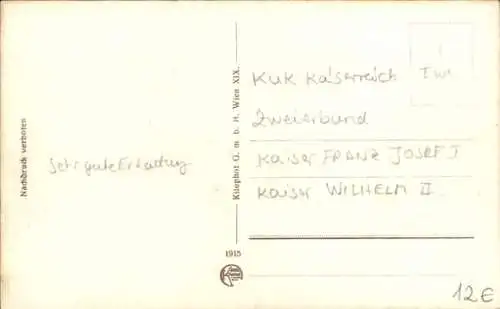 Nachdruck verboten
Sehr gute Erhaltung
Kilophot G. m. b. H. Wien XIX.
1915
KuK Kaiserreich
Zweierbund
Kaiser FRANZ JOSEF I
Kaiser WILHELM II
12€